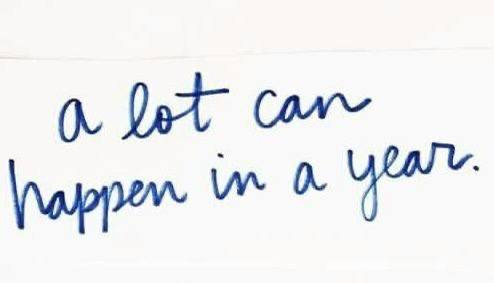 a lot can
happen in a year.